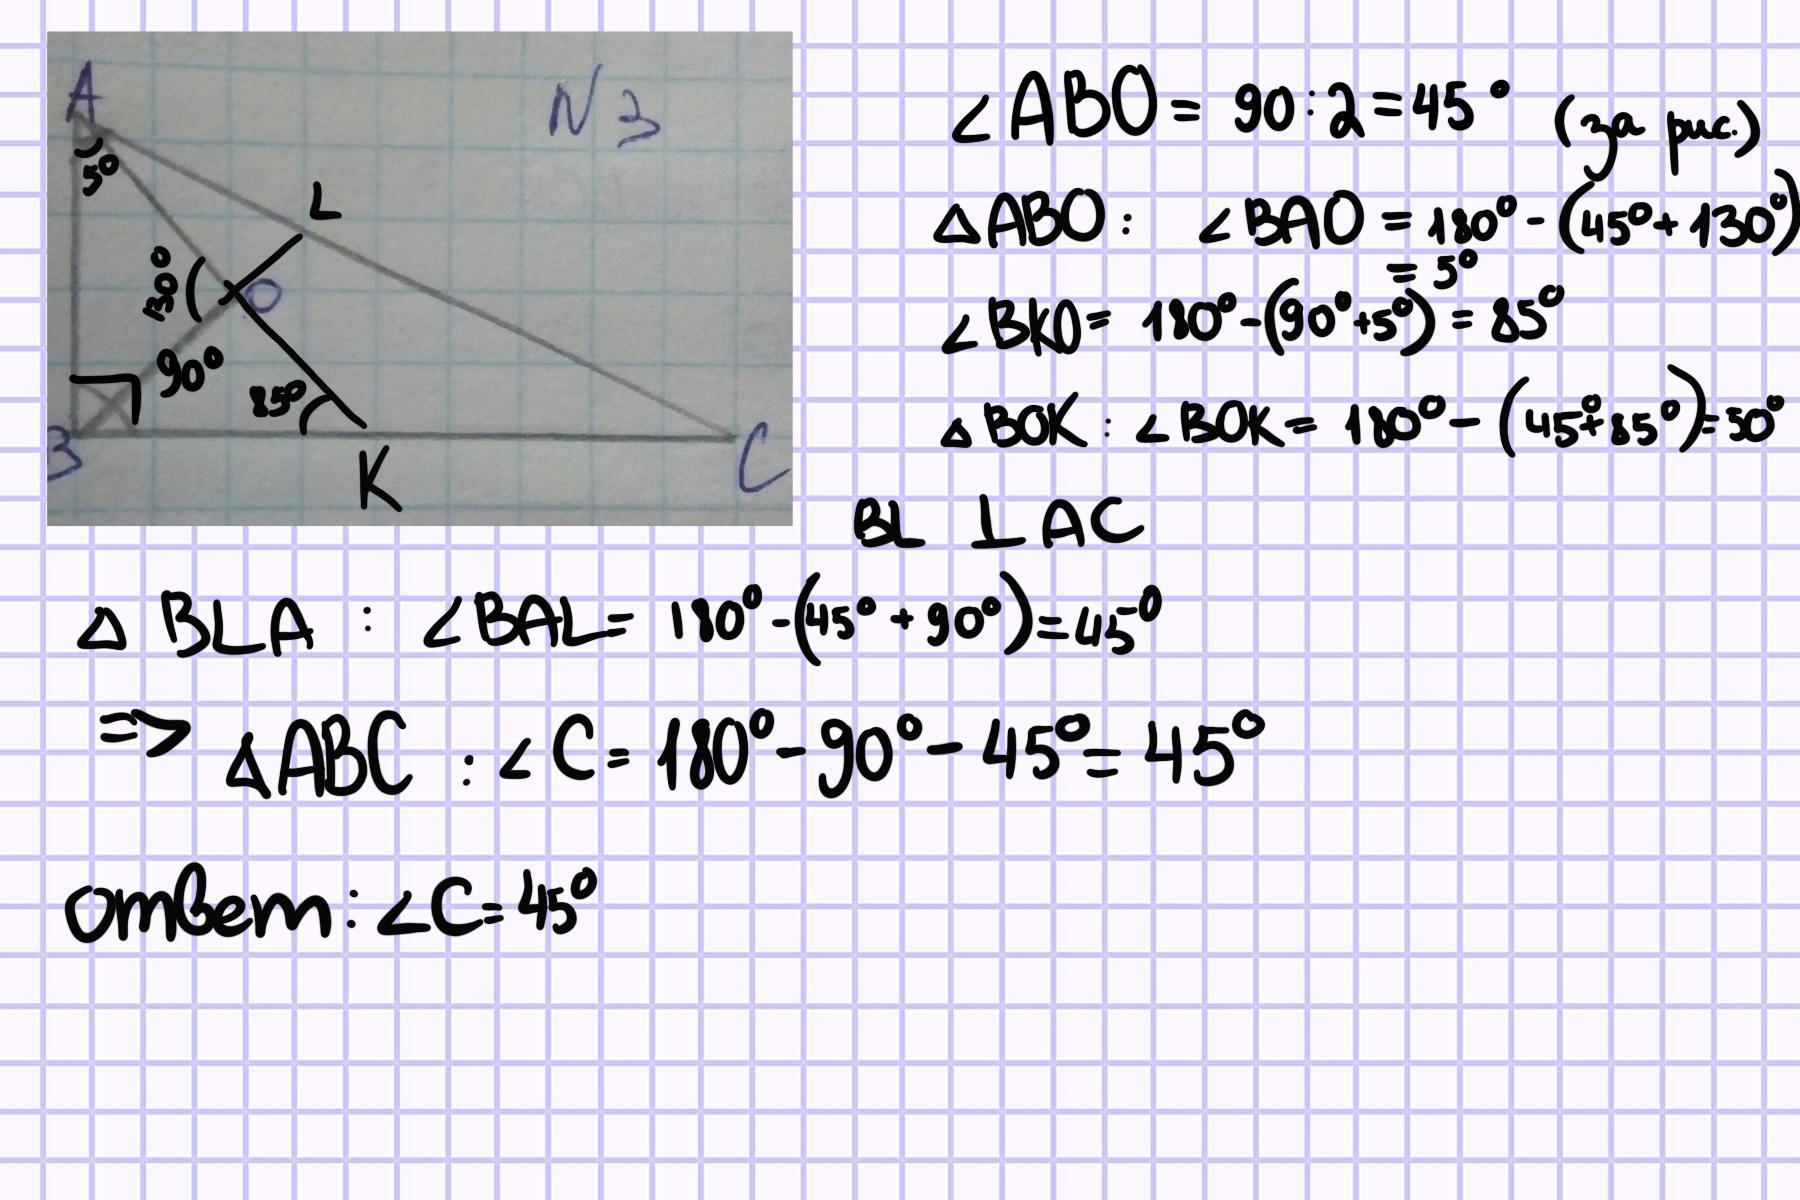 A
N3
5°
L
130°
O
90°
85°
B
K
C
∠ABO = 90:2=45° (за рис.)
△ABO: ∠BAO = 180° - (45°+130°)
= 5°
∠BKO= 180°-(90°+5°) = 85°
△BOK: ∠BOK= 180°- (45°+85°)=50°
BL ⊥ AC
△BLA : ∠BAL= 180°-(45°+90°)=45°
=> △ABC : ∠C= 180°-90°-45°= 45°
ответ: ∠C=45°